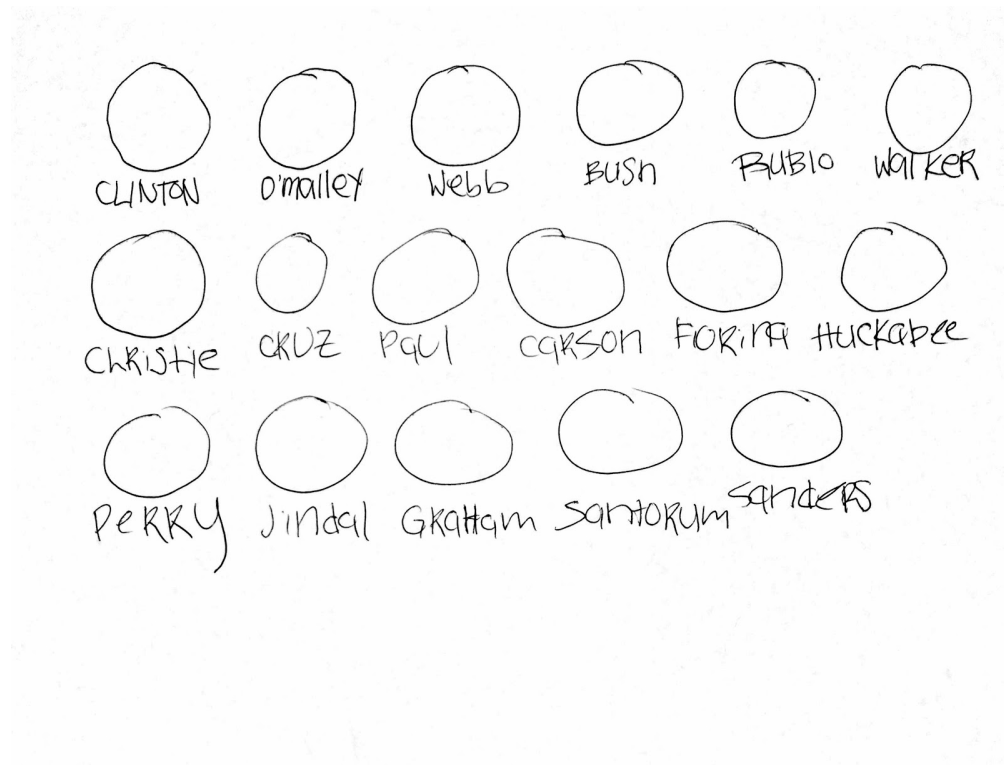 CLINTON O'malley Webb BUSh RUBIO WalKER
ChRiStie CRUZ Paul CaRSON FORiNa HuckaBee
PeRRY Jindal GRaHam SantORUm SandeRS